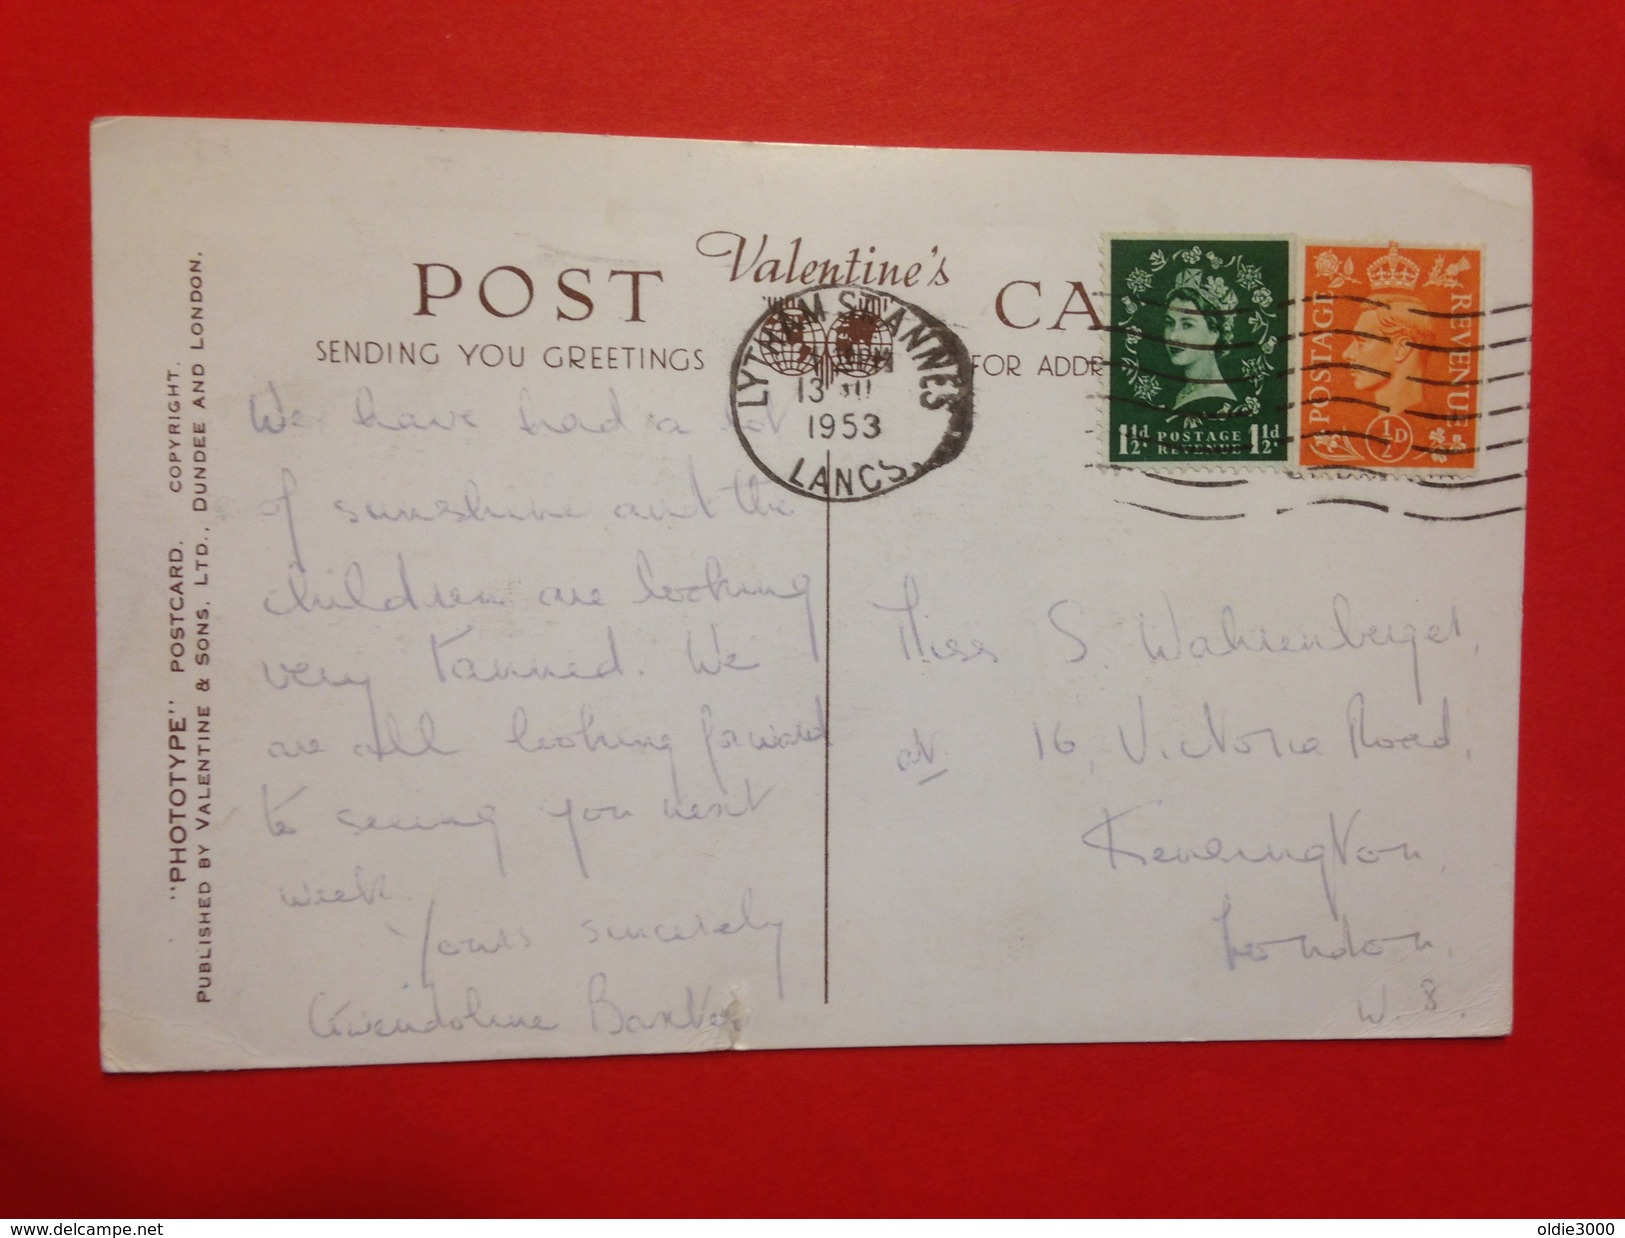 POST Valentine's CA
SENDING YOU GREETINGS
FOR ADDR
LYTHAM ST ANNES
13
1953
LANCS.
1½d. POSTAGE REVENUE 1½d.
POSTAGE
REVENUE
½D
"PHOTOTYPE" POSTCARD. COPYRIGHT.
PUBLISHED BY VALENTINE & SONS, LTD., DUNDEE AND LONDON.
We have had a lot
of sunshine and the
children are looking
very tanned. We
are all looking forward
to seeing you next
week.
Yours sincerely
Gwendoline Baxter
Miss S.
at 16, Victoria Road,
Kensington,
London,
W. 8.
http://www.delcampe.net
oldie3000